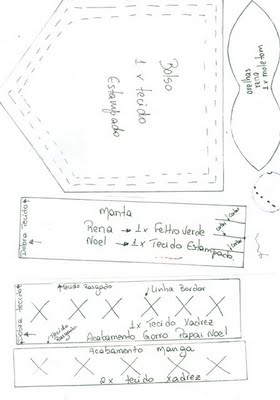 Bolso
1 x tecido
Estampado
orelhas
rena
1x moletom
Manta
Rena → 1x Feltro Verde
Noel → 1x Tecido Estampado
Dobra Tecido
Tecido Rasgado
Linha Bordar
Dobra tecido
Tecido
Rasgado
1x Tecido Xadrez
Acabamento Gorro Papai Noel
Acabamento Manga
2x tecido xadrez